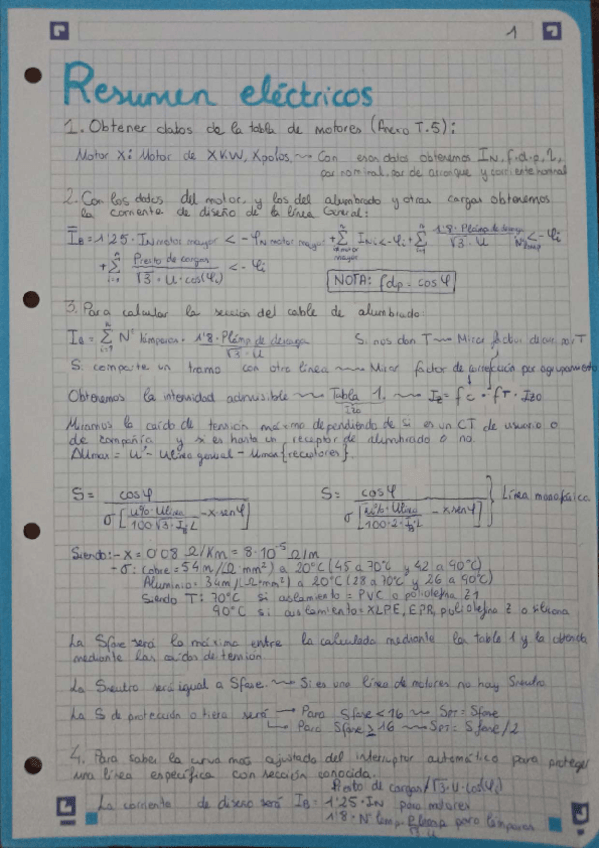 1
Resumen eléctricos
1. Obtener datos de la tabla de motores (Anexo T.5):
Motor X: Motor de X KW, X polos, ~> Con esos datos obtenemos IN, f.d.p, η,
par nominal, par de arranque y corriente nominal
2. Con los datos del motor, y los del alumbrado y otras cargas obtenemos
la corriente de diseño de la línea General:
IB = 1'25 · IN motor mayor < -φN motor mayor + Σ INi < -φi + Σ 1'8 · Plámp de descarga / √3 · U · Nº lámp < -φi
+ Σ Presto de cargas / √3 · U · cos(φi) < -φi
NOTA: fdp = cos φ
3. Para calcular la sección del cable de alumbrado:
IB = Σ Nº lámparas · 1'8 · Plámp de descarga / √3 · U Si nos dan T ~> Mirar factor de corr. por T
Si comparte un tramo con otra línea ~> Mirar factor de corrección por agrupamiento
Obtenemos la intensidad admisible ~> Tabla 1. ~> IZ = fC · fT · IZ0
IZ0
Miramos la caída de tensión máxima dependiendo de si es un CT de usuario o
de compañía y si es hasta un receptor de alumbrado o no.
ΔUmax = U - Ulínea general - Umax {receptores}.
S = cos φ / σ [ U% · Ulínea / 100 √3 · IB · L - x · sen φ ] S = cos φ / σ [ U% · Ulínea / 100 · 2 · IB · L - x · sen φ ] } Línea monofásica
Siendo: - X = 0'08 Ω/Km = 8·10⁻⁵ Ω/m
- σ: Cobre = 54 m/(Ω·mm²) a 20ºC (45 a 70ºC y 42 a 90ºC)
Aluminio = 34 m/(Ω·mm²) a 20ºC (28 a 70ºC y 26 a 90ºC)
Siendo T: 70ºC si aislamiento = PVC o poliolefina Z1
90ºC si aislamiento = XLPE, EPR, poliolefina Z o silicona
La Sfase será la máxima entre la calculada mediante la tabla 1 y la obtenida
mediante las caídas de tensión.
La Sneutro será igual a Sfase. ~> Si es una línea de motores no hay Sneutro
La S de protección o tierra será → Para Sfase < 16 ~> SPT = Sfase
→ Para Sfase ≥ 16 ~> SPT = Sfase/2
4. Para saber la curva más ajustada del interruptor automático para proteger
una línea específica con sección conocida.
Presto de cargas/√3·U·cos(φi)
La corriente de diseño será IB = 1'25 · IN para motores
1'8 · Nº lámp · Plámp / U para lámparas